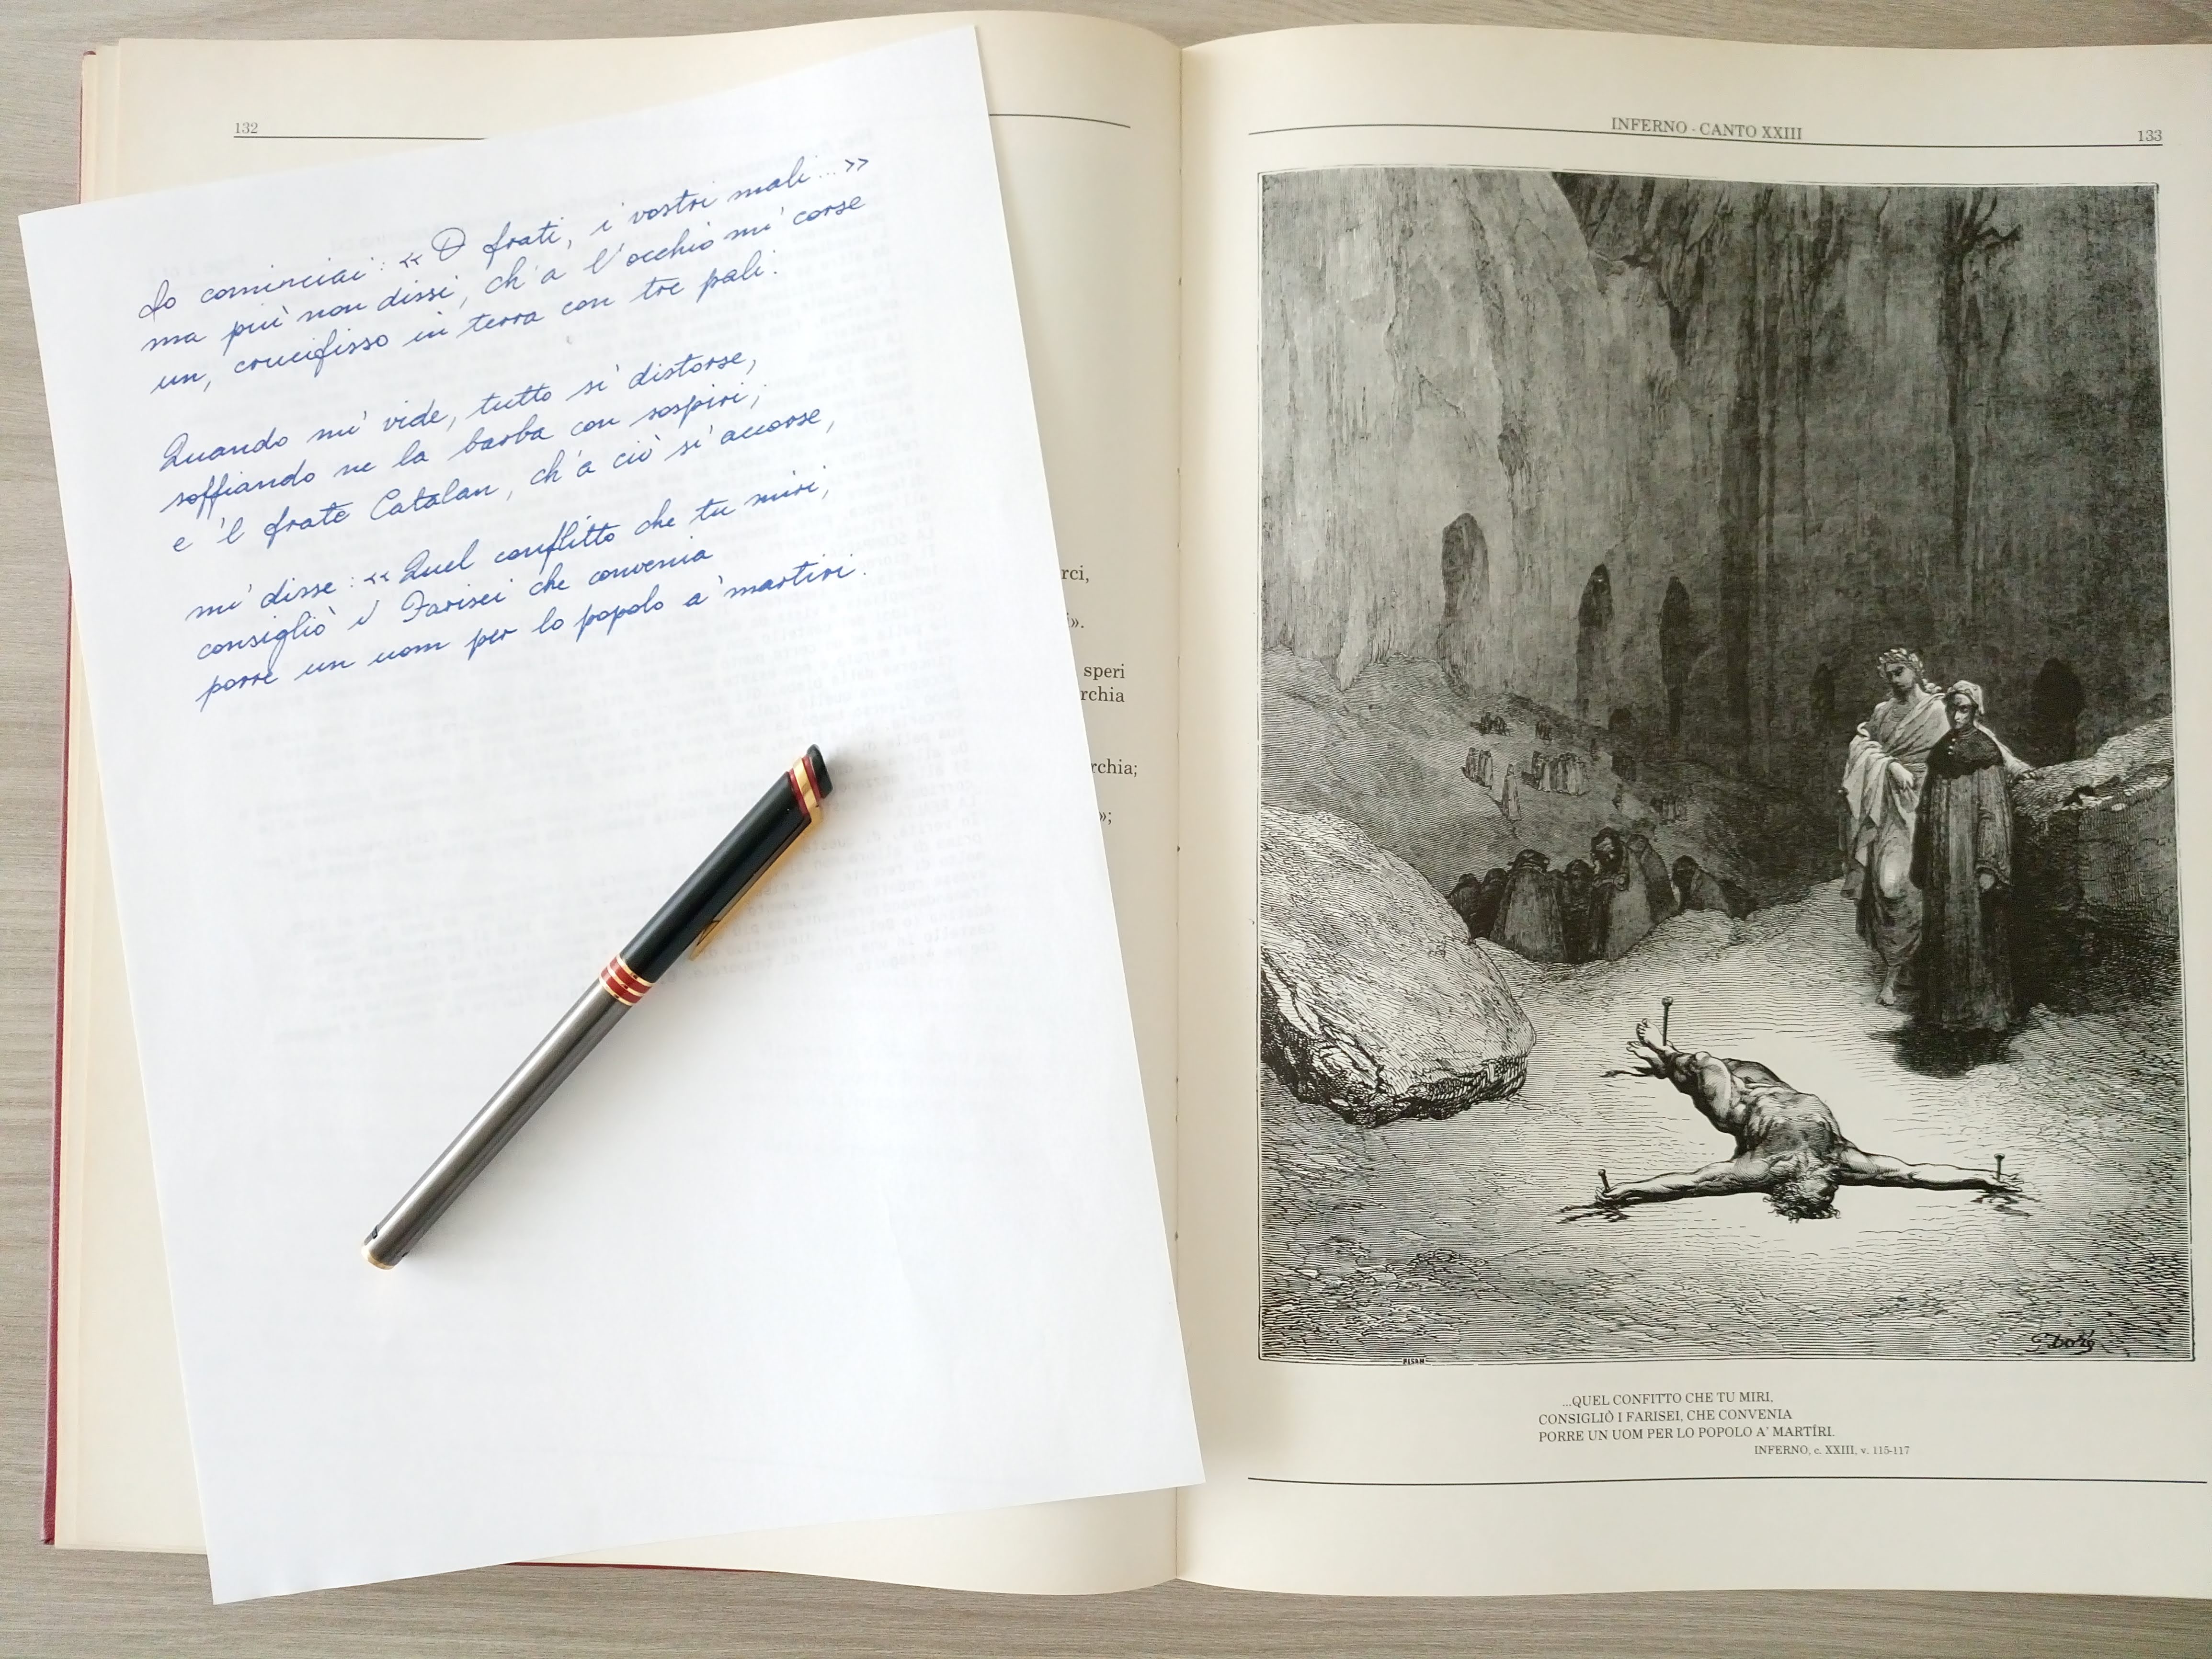 132
Io cominciai: «O frati, i vostri mali...»
ma più non dissi, ch'a l'occhio mi corse
un, crucifisso in terra con tre pali.
Quando mi vide, tutto si distorse,
soffiando ne la barba con sospiri;
e 'l frate Catalan, ch'a ciò si accorse,
mi disse: «Quel conflitto che tu miri,
consigliò i Farisei che convenia
porre un uom per lo popolo a' martiri.
rci,
i».
speri
rchia
rchia;
»;
INFERNO - CANTO XXIII
133
PISAN
G Doré
...QUEL CONFITTO CHE TU MIRI,
CONSIGLIÒ I FARISEI, CHE CONVENIA
PORRE UN UOM PER LO POPOLO A' MARTÍRI.
INFERNO, c. XXIII, v. 115-117